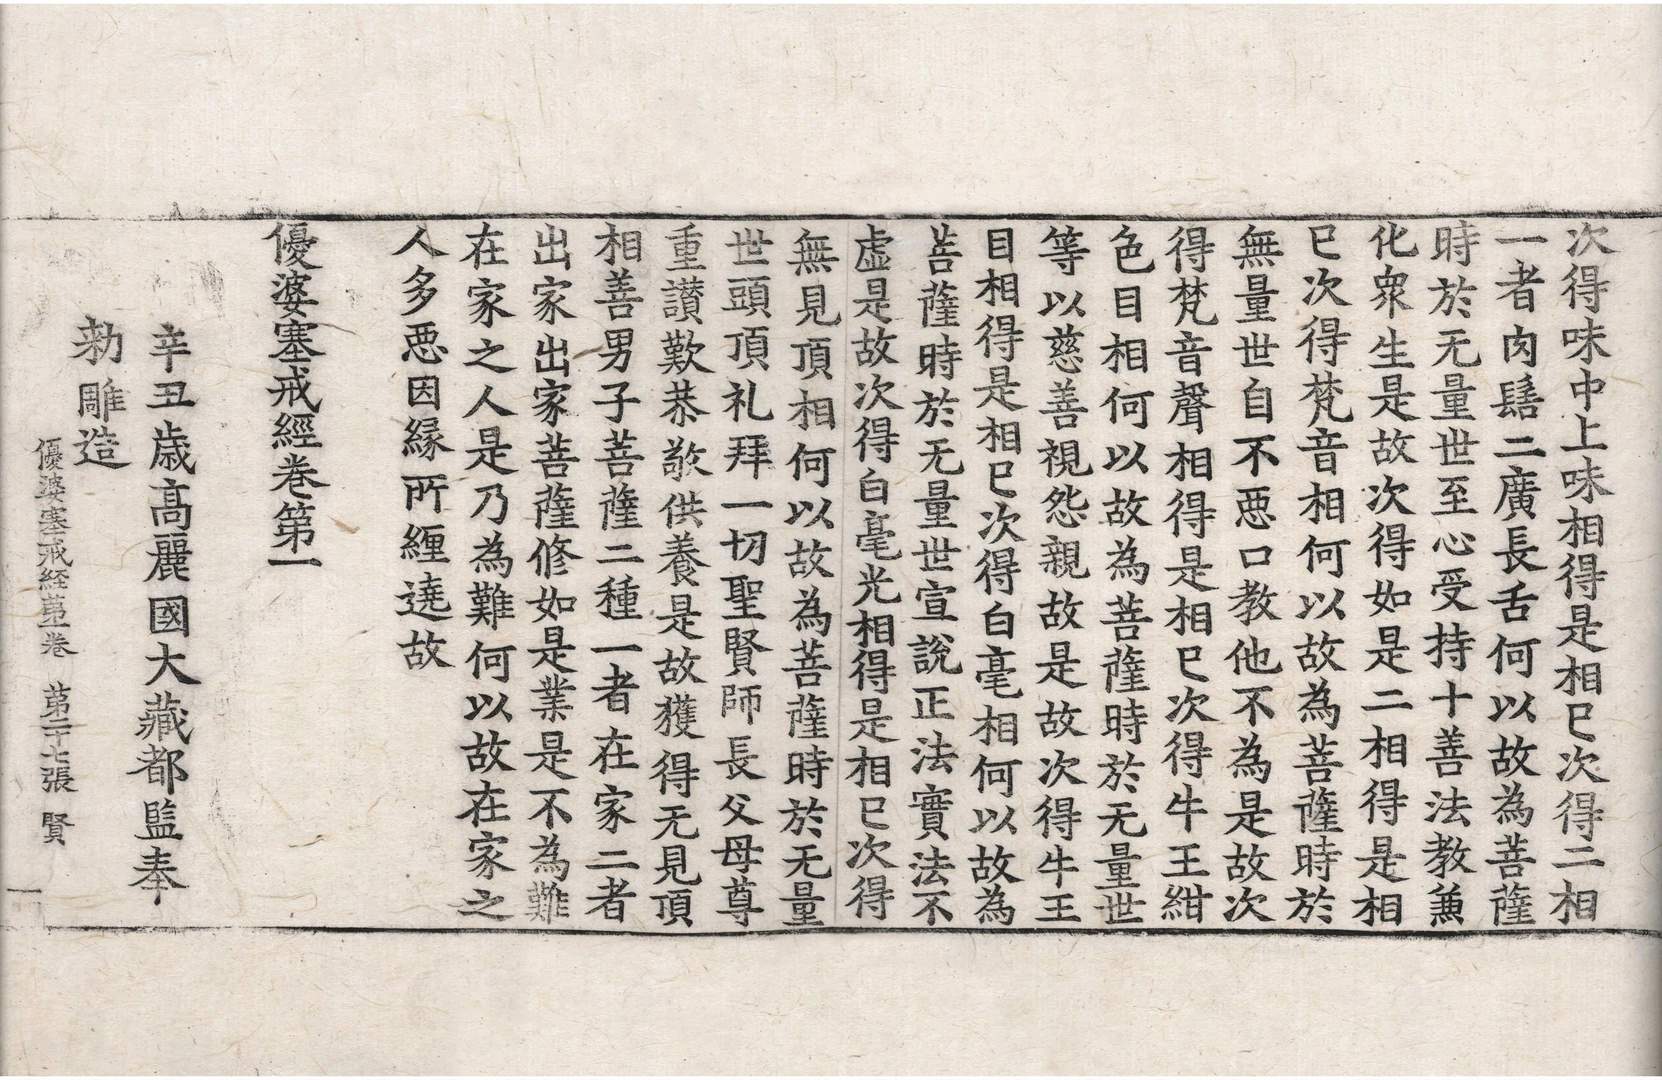 次得味中上味相得是相已次得二相
一者肉髻二廣長舌何以故為菩薩
時於无量世至心受持十善法教兼
化衆生是故次得如是二相得是相
已次得梵音相何以故為菩薩時於
無量世自不惡口教他不為是故次
得梵音聲相得是相已次得牛王紺
色目相何以故為菩薩時於无量世
等以慈善視怨親故是故次得牛王
目相得是相已次得白毫相何以故為
菩薩時於无量世宣說正法實法不
虛是故次得白毫光相得是相已次得
無見頂相何以故為菩薩時於无量
世頭頂礼拜一切聖賢師長父母尊
重讃歎恭敬供養是故獲得无見頂
相善男子菩薩二種一者在家二者
出家出家菩薩修如是業是不為難
在家之人是乃為難何以故在家之
人多惡因緣所纏遶故
優婆塞戒經卷第一
辛丑歲高麗國大藏都監奉
勅雕造
優婆塞戒経第一卷 第二十七張 賢